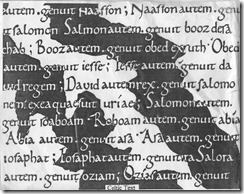 autem. genuit Naasson; Naasson autem. genuit
salomon Salmon autem. genuit booz de ra
chab; Booz autem. genuit obed ex ruth. Obed
autem. genuit iesse; Iesse autem. genuit da
uid regem; David autem rex. genuit salomo
nem ex ea quae fuit uriae; Salomon autem.
genuit roboam. Roboam autem. genuit abia
Abia autem. genuit asa. Asa autem. genuit
iosaphat; Iosaphat autem. genuit
genuit oziam; Ozias autem. genuit